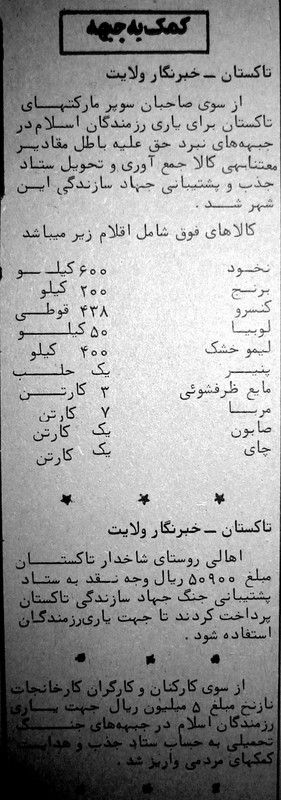 کمک به جبهه
تاکستان ــ خبرنگار ولایت
از سوی صاحبان سوپر مارکتهای
تاکستان برای یاری رزمندگان اسلام در
جبهه‌های نبرد حق علیه باطل مقادیر
معتنابهی کالا جمع آوری و تحویل ستاد
جذب و پشتیبانی جهاد سازندگی این
شهر شد .
کالاهای فوق شامل اقلام زیر میباشد
نخود ۶۰۰ کیلو
برنج ۲۰۰ کیلو
کنسرو ۴۳۸ قوطی
لوبیا ۵۰ کیلو
لیمو خشک ۴۰۰ کیلو
پنیر یک حلب
مایع ظرفشوئی ۳ کارتن
مربا ۷ کارتن
صابون یک کارتن
چای یک کارتن
تاکستان ــ خبرنگار ولایت
اهالی روستای شاخدار تاکستان
مبلغ ۵۰۹۰۰ ریال وجه نقد به ستاد
پشتیبانی جنگ جهاد سازندگی تاکستان
پرداخت کردند تا جهت یاری‌رزمندگان
استفاده شود .
از سوی کارکنان و کارگران کارخانجات
نازنخ مبلغ ۵ میلیون ریال جهت یاری
رزمندگان اسلام در جبهه‌های جنگ
تحمیلی به حساب ستاد جذب و هدایت
کمکهای مردمی واریز شد .